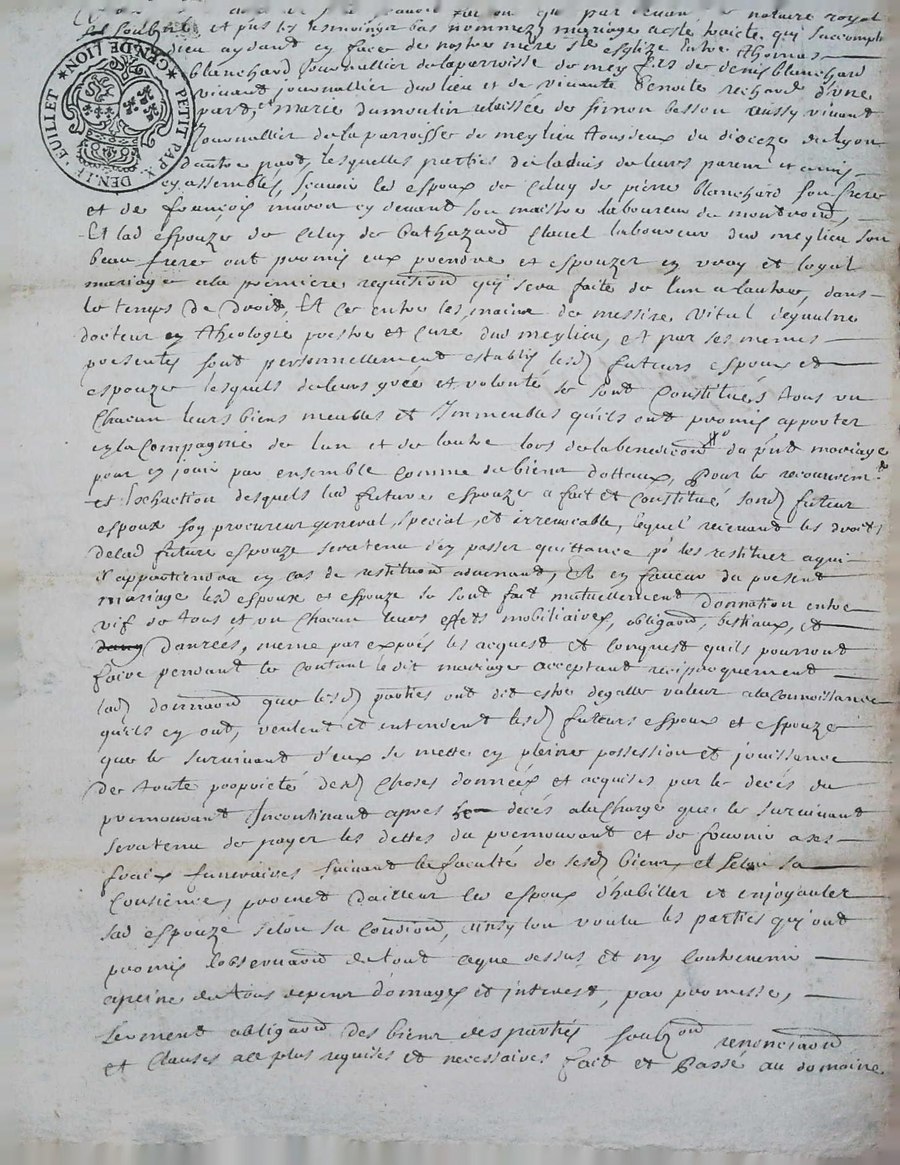 par devant le notaire royal
soubzné et pnts les tesmoingz bas nommez, mariage a esté traicté qui s'accomplira
dieu aydand en face de nostre mere ste esglize Entre Thomas
blanchard Journallier de la parroisse de mey fils de denis blanchard
vivand journallier dud lieu et de vivante benoite richard d'une
pard, et Marie dumoulin relaissée de simon basson aussy vivant
Journallier de la parroisse de meylieu tous deux du dioceze de lyon
dautre pard, lesquelles parties de ladvis de leurs parens et amis
ey assemblés, scavoir led espoux de celuy de pierre blanchard son frere
et de françois ey devand son maistre laboureur de montrond,
Et lad espouze de celuy de bathazard Clavel laboureur dud meylieu son
beau frere ont promis eux prendre et espouzer en vray et loyal
mariage a la premiere requisition qui sera faite de lun a lautre, dans
le temps de droid, Et ce entre les mains de messire Vital
docteur en theologie prestre et Curé dud meylieu, et par ses mesmes
presentes sond personnellement establis lesd futurs espoux et
espouze lesquels de leurs grée et volonté se sond Constitués tous un
Chacun leurs biens meubles et Immeubles qu'ils ont promis apporter
en la Compagnie de lun et de lautre lors de la benediction du pnt mariage
pour en jouir par ensemble comme de biens dottaux, pour le recouvremt
et Exhaction desquels lad future espouze a fait et Constitué sond futur
espoux son procureur general, special, et irrevocable, lequel recevant les droits
de lad future espouze sera tenu d'en passer quittance pr les restituer a qui
il appartiendra en cas de restitution advenand, Et en faveur du present
mariage led espoux et espouze se sont fait mutuellement donnation entre
vif de tous et un chacun leurs effets mobiliaires, obligaōns, bestiaux, et
danrées, meme par exprès les acquest et conquest quils pourront
faire pendant le constant dedit mariage acceptant reciproquement
lad donnaōn que lesd parties ont dit estre degalle valeur a la connoissance
qu'ils en ont, veulent et entendent lesd futurs espoux et espouze
que le survivant d'eux se mette en pleine possession et jouissance
de toute propriété desd choses données et acquises par le decés du
premourant Incontinant apres decés a la charge que le survivant
sera tenu de payer les dettes du premourant et de fournir a ses
fraix funeraires suivant la faculté de sesd biens, et selon sa
Consience, promet dailleur led espoux d'habiller et enjoyauler
sad espouze selon sa condiōn, ainsy lon voulu les parties qui ont
promis lobservaōn de tout ce que dessus et ny contrevenir
a peine de tous depens domages et interest, par promesse,
serment obligaōn des biens des parties soubzōn renonciaōn
et clauses a ce plus requises et necessaires fait et passé au domaine
GEN. DE LION
PETIT PAP.
DEN. LE FEUILLET